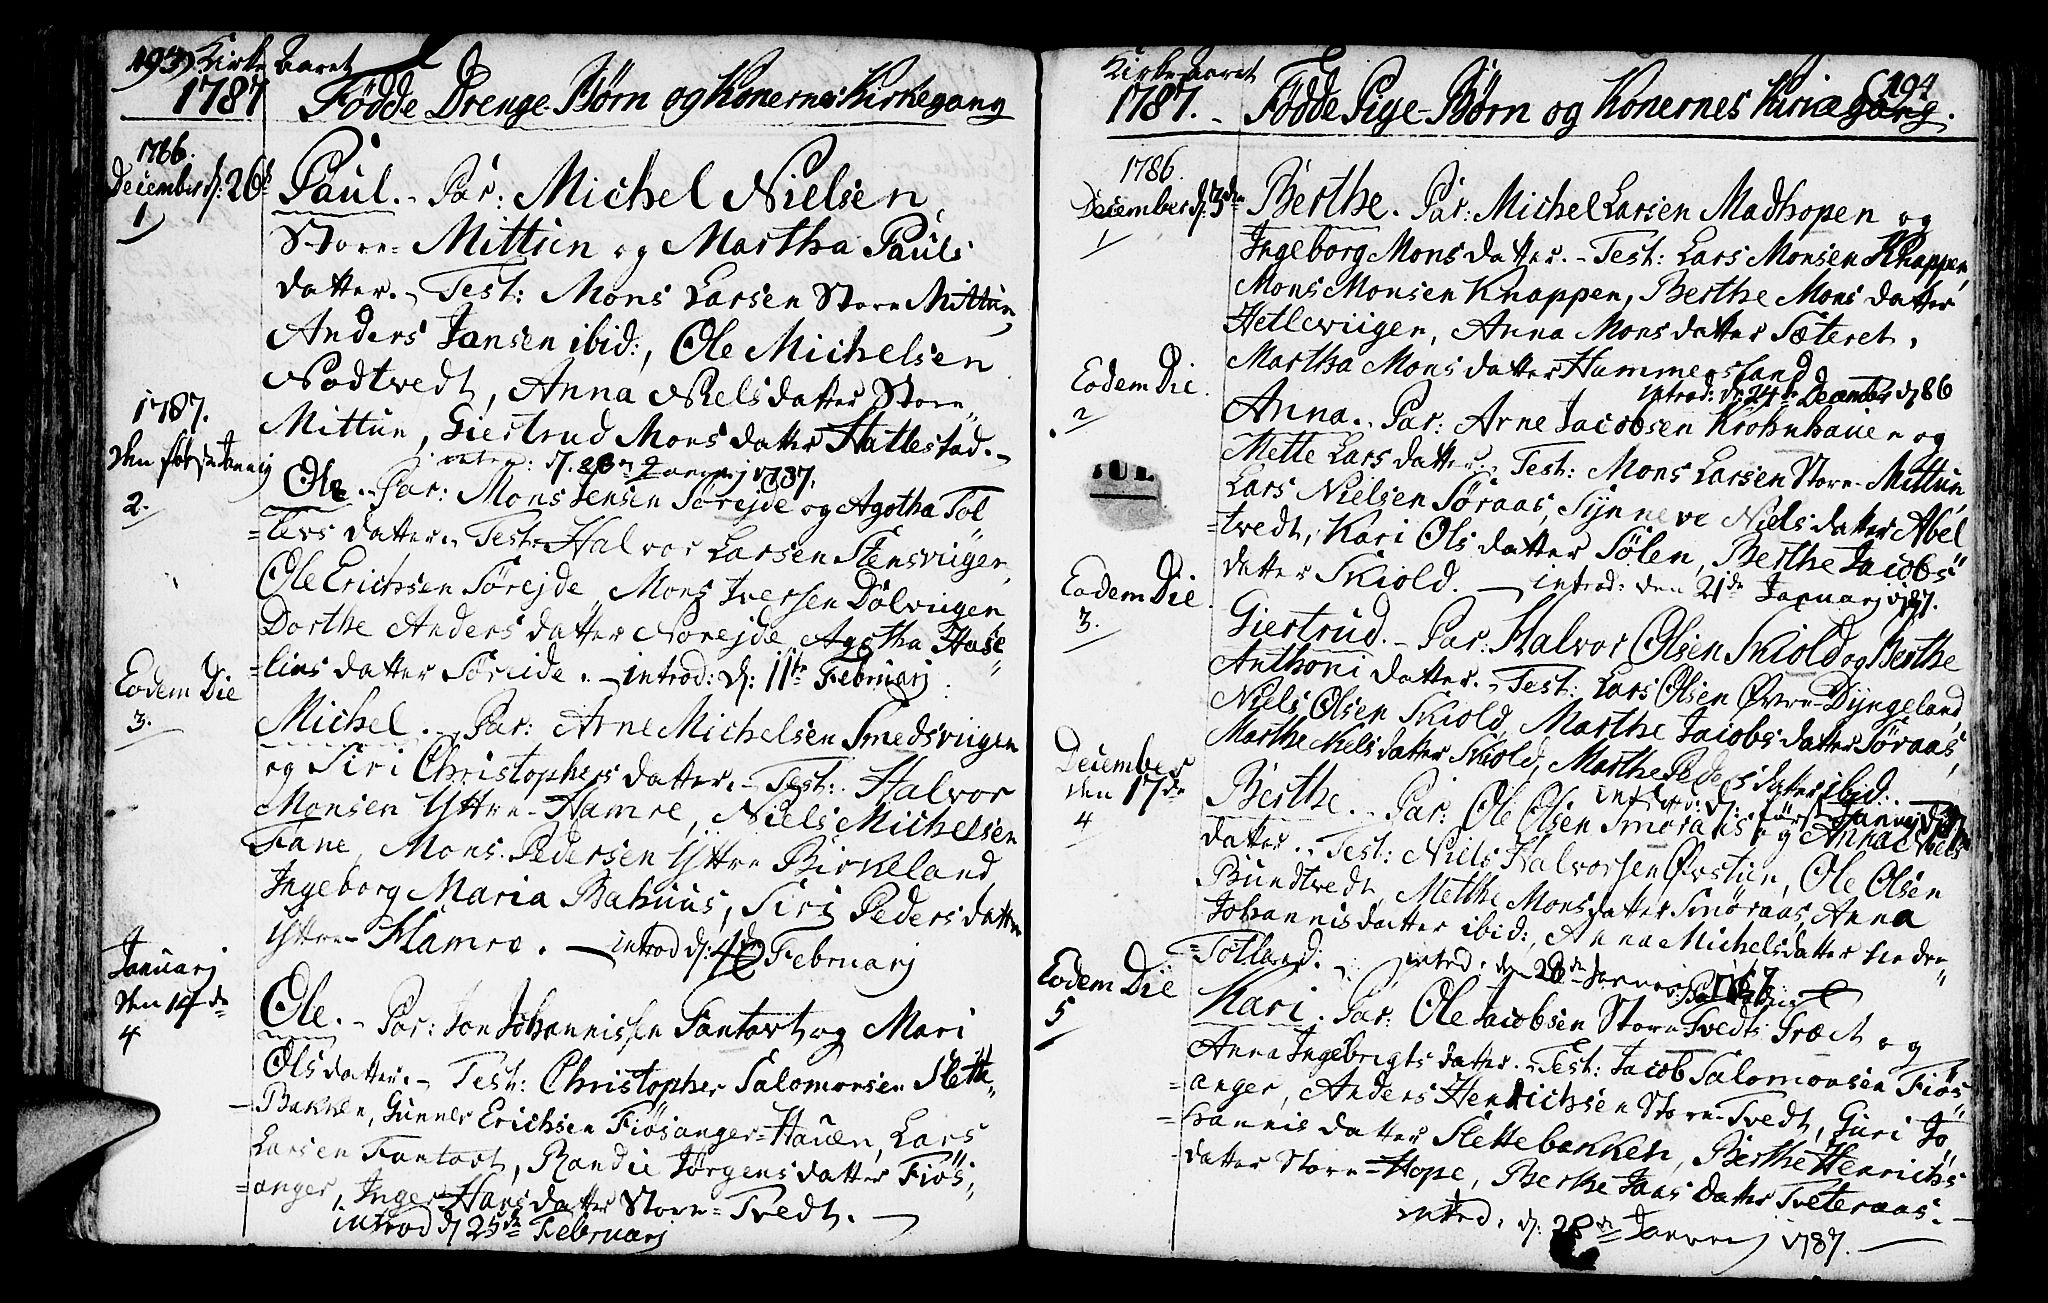 193
Kirke-Aaret
1787
Fødde Drenge-Børn og Konernes Kirkegang
1786.
December d: 26de
1
Paul. - Par: Michel Nielsen
Store-Mittun og Martha Pauls
datter. - Test: Mons Larsen Store Mittun,
Anders Jansen ibid:, Ole Michelsen
Nodtvedt, Anna Nielsdatter Store-
Mittun, Giertrud Monsdatter Hatlestad. -
introd: d. 28de Januarj 1787.
1787.
den første Januarj
2.
Ole. - Par: Mons Jensen Sørejde og Agotha Tol
=levsdatter. Test: Halvor Larsen Stensviigen,
Ole Erichsen Sørejde, Mons Iversen Dølviigen
Dorthe Andersdatter Norejde, Agotha Hase
=liusdatter Søreide. - introd: d: 11te Februarj
Eodem Die
3.
Michel. - Par: Arne Michelsen Smedsviigen
og Siri Christophersdatter. - Test: Halvor
Monsen Yttre-Hamre, Niels Michelsen
Fane, Mons Pedersen Yttre Birkeland
Ingeborg Maria Bahuus, Siri Pedersdatter
Yttre-Hamre. - introd d: 4de Februarj
Januarj
den 14de
4
Ole. - Par: Jon Johannissen Fantoft og Mari
Olsdatter. - Test: Christopher Salomonsen Slette-
-Bakken, Gunner Erichsen Fiøsanger-Hauen, Lars
Larsen Fantoft, Randie Jørgensdatter Fiøs-
=anger, Inger Hansdatter Store-Tvedt. -
introd d 25de Februarj
194
Kirke-Aaret
1787. - Fødde Pige-Børn og Konernes Kirkegang.
1786.
December d: 3de
1
Berthe. Par: Michel Larsen Madhopen og
Ingeborg Monsdatter. - Test: Lars Monsen Knappen,
Mons Monsen Knappen, Berthe Monsdatter
Hetleviigen, Anna Monsdatter Sæteret,
Martha Monsdatter Hammersland
introd: d: 24de December 1786
Eodem Die
2
Anna. - Par: Arne Jacobsen Krohnhauen og
Mette Larsdatter. - Test: Mons Larsen Store-Mittun,
Lars Nielsen Søraas, Synneve Nielsdatter Abel
=tvedt, Kari Olsdatter Sølen, Berthe Jacobs
datter Skiold. - introd: den 21de Januarj 1787.
Eodem Die
3.
Giertrud. - Par: Halvor Olsen Skiold og Berthe
Anthonidatter. - Test: Lars Olsen Øvre-Dyngeland
Niels Olsen Skiold, Marthe Jacobsdatter Søraas,
Marthe Nielsdatter Skiold, Marthe Pedersdatter ibid:
introd: d: første Januarj 1787
December
den 17de
4
Berthe. - Par: Ole Olsen Smøraas og Anna Niels
datter. - Test: Niels Halvorsen Østien, Ole Olsen
Bundtvedt, Metthe Monsdatter Smøraas, Anna
Johannisdatter ibid:, Anna Michelsdatter Indre
=Totland. - introd: den 28de Januarj 1787
Eodem Die
5
Kari. Par: Ole Jacobsen Store-Tvedts Træet og
Anna Ingebrigtsdatter. - Test: Jacob Salomonsen Fiøs
=anger, Anders Henrichsen Store-Tvedt, Guri Jo
=hannisdatter Slettebakken, Berthe Henrichs
=datter Store-Hope, Berthe Jansdatter Tveteraas. -
introd: d: 28de Januarj 1787.